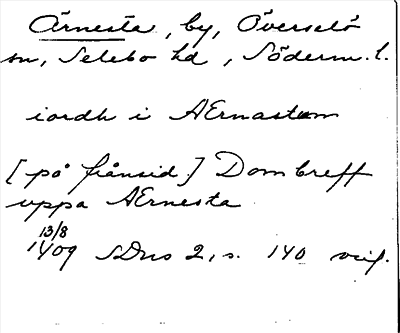 Ärnesta, by, Överselö
sn, Selebo hd, Söderm. l.
iordh i AErnastum
[på frånsid.] Dombreff
uppa AErnesta
13/8
1409 SDns 2, s. 140